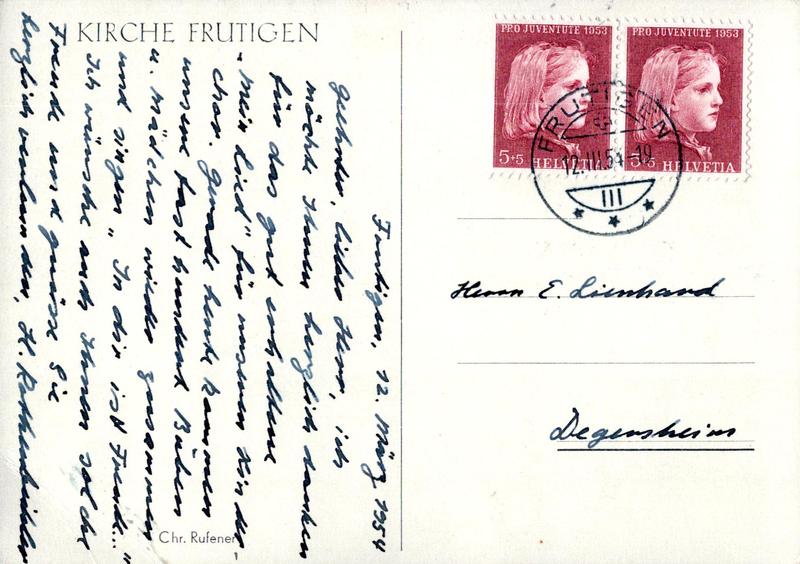 KIRCHE FRUTIGEN
Frutigen, 12. März 1954
geehrter, lieber Herr, ich
möchte Ihnen herzlich danken
für das gut erhaltene
"Mein Lied" für unseren Kinder-
chor. Gerade heute kamen
unsere fast hundert Buben
u. Mädchen wieder zusammen
und singen "In dir ist Freude..."
Ich wünsche auch Ihnen solche
Freude und grüsse Sie
herzlich verbunden,
Chr. Rufener
PRO JUVENTUTE 1953
5+5 HELVETIA
PRO JUVENTUTE 1953
5+5 HELVETIA
FRUTIGEN
12.III.54-19
III
Herrn E. Lienhard
Degersheim